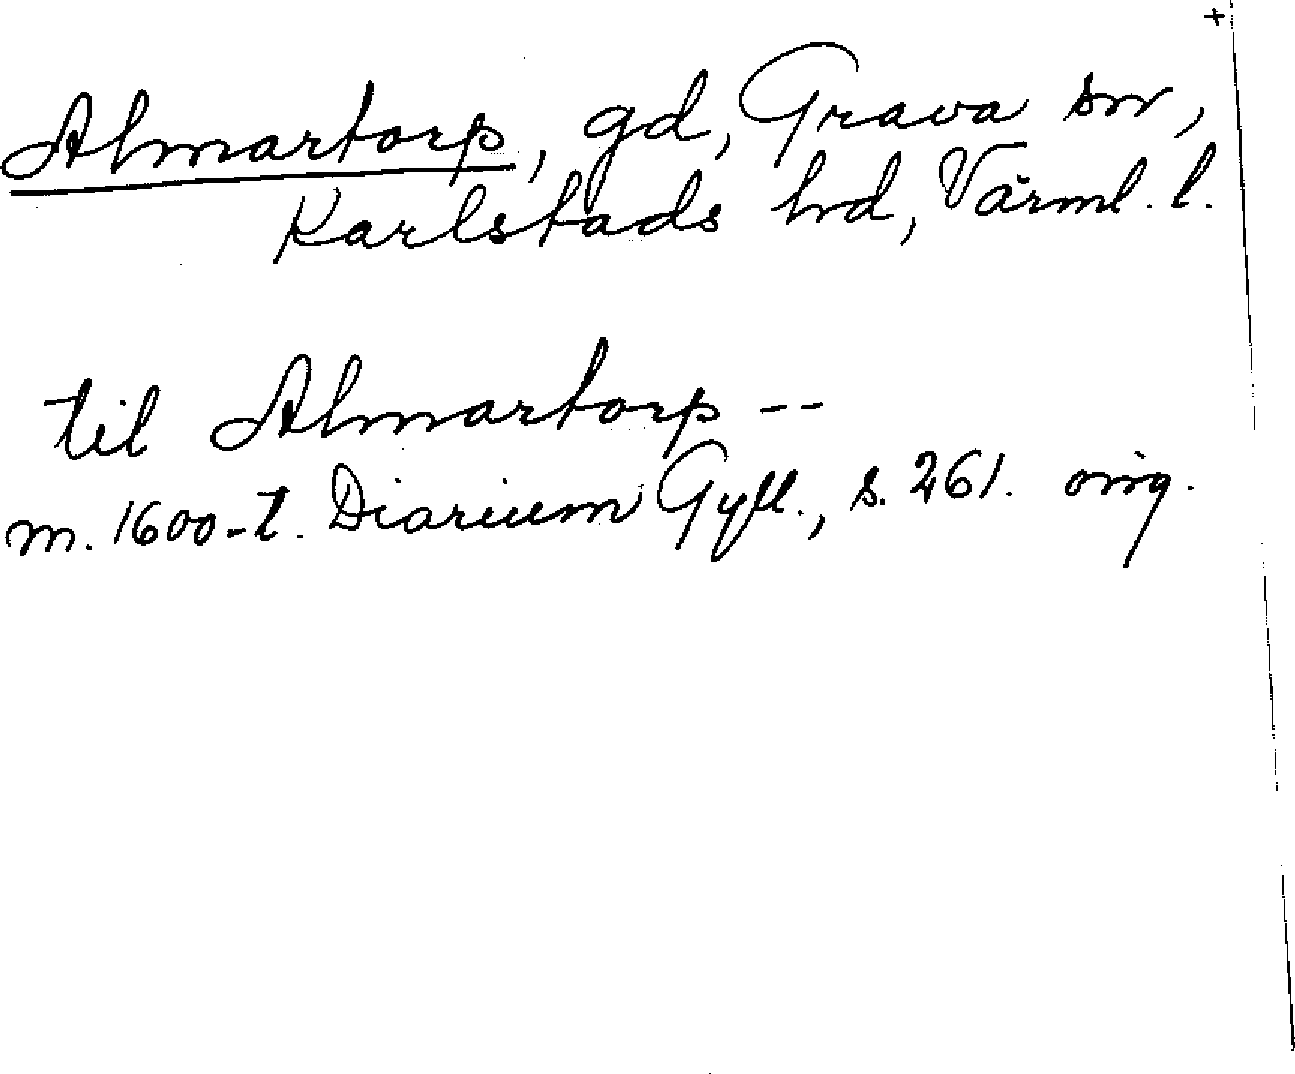 +
Almartorp, gd, Grava sn,
Karlstads hd, Värml. l.
til Almartorp --
m. 1600-t. Diarium Gyll., s. 261. orig.